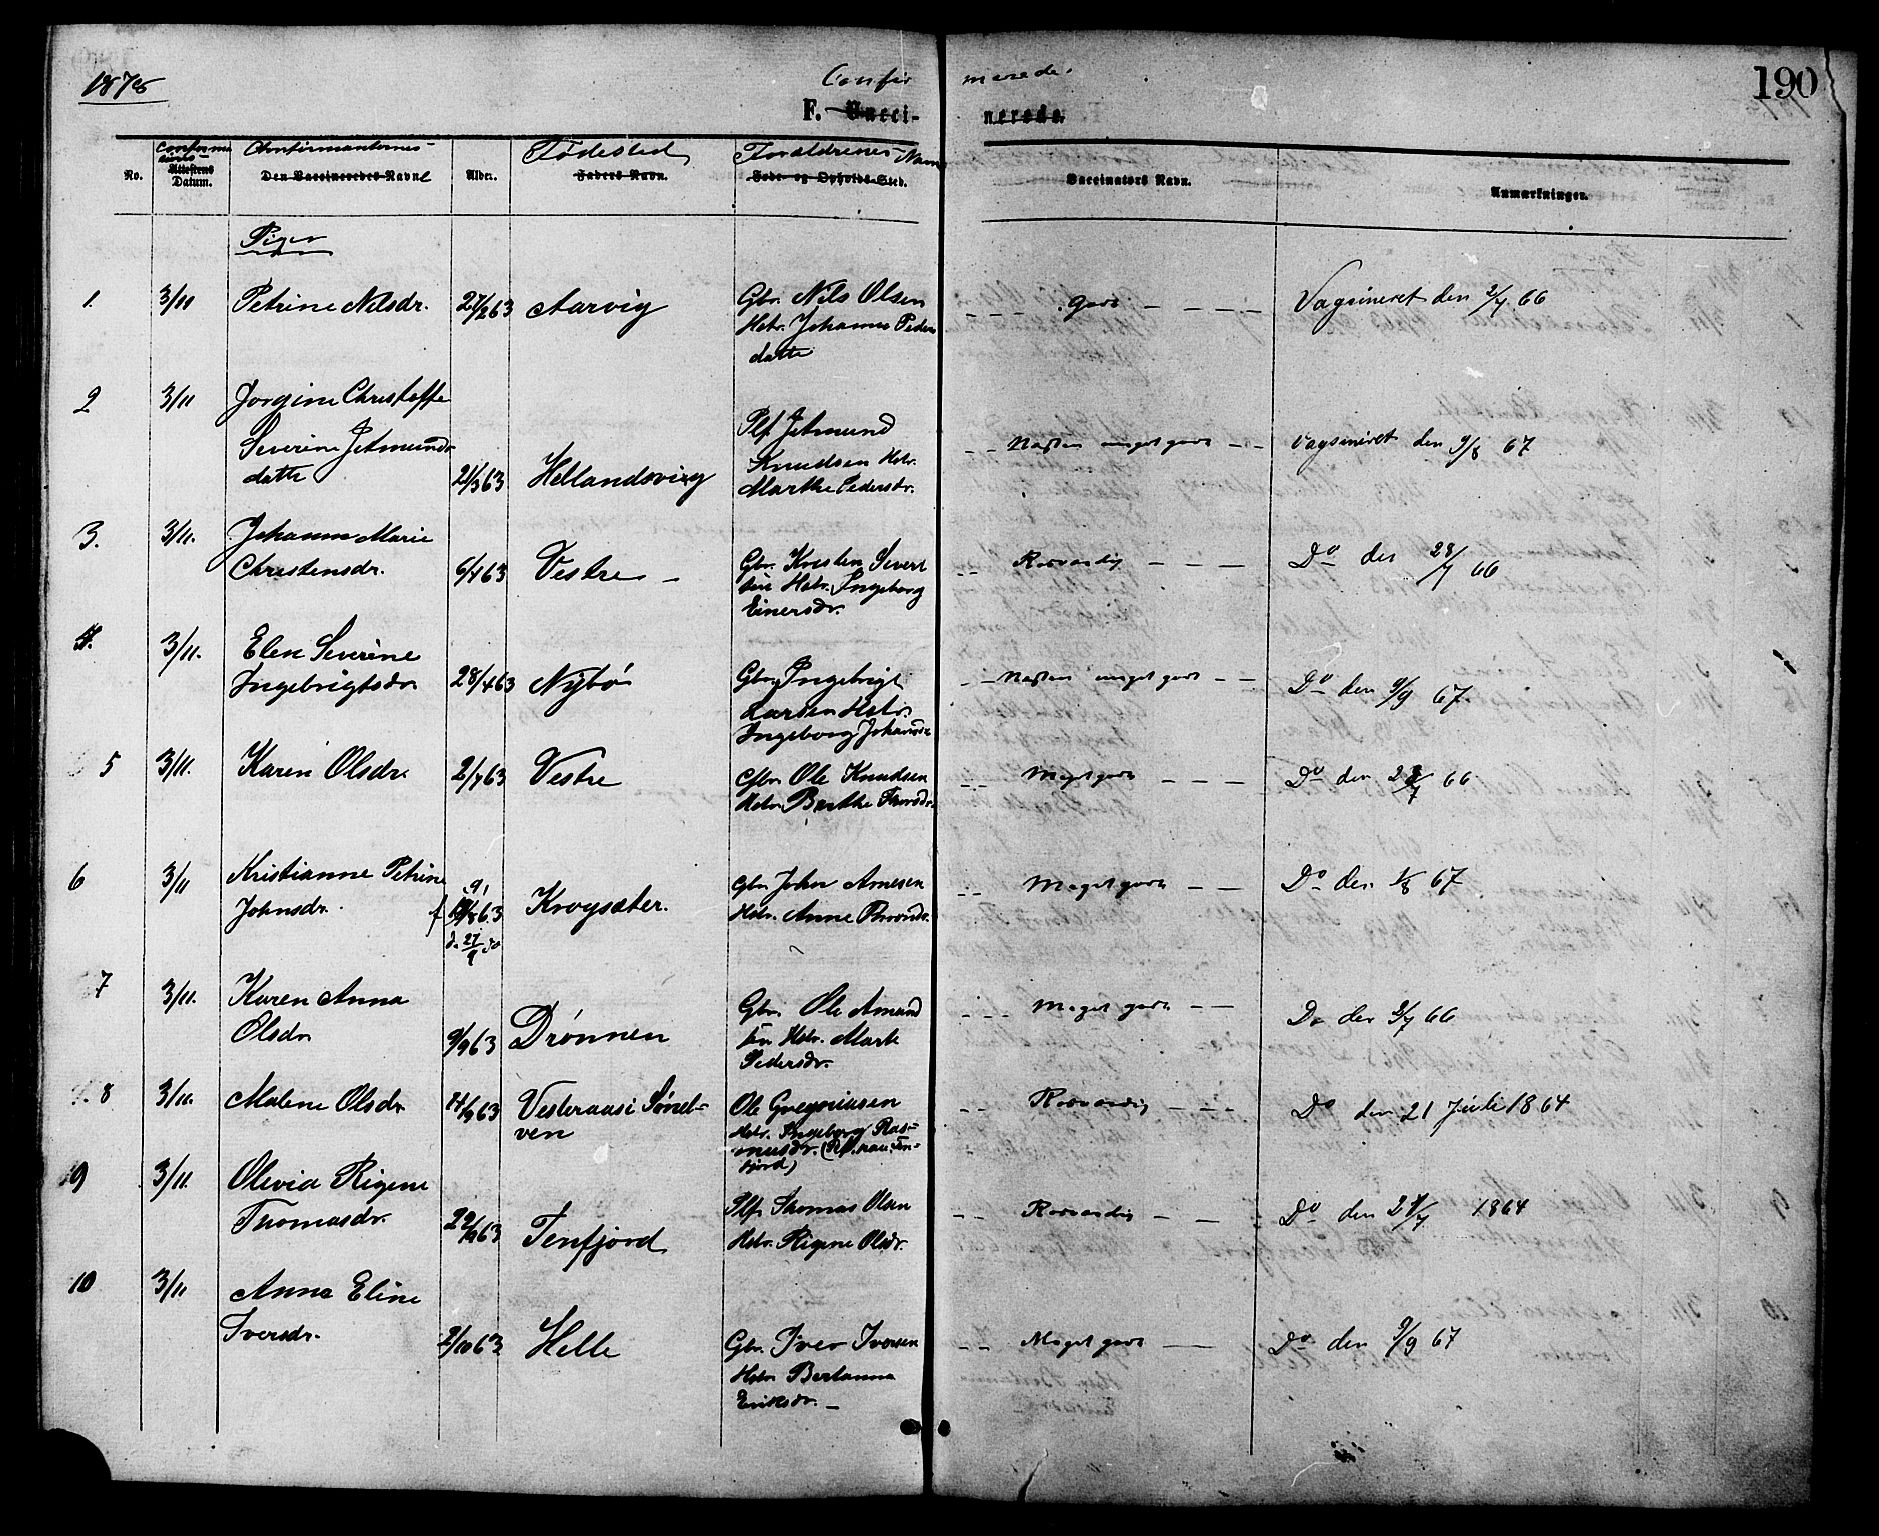 1878
Confir marede.
190
F. Vacci- nerede.
No.
Confirma
tions-
Attestens
Datum.
Confirmanternes-
Den Vaccineredes Navn
Alder.
Fødested
Faders Navn.
Forældrenes Navn
Føde- og Opholds-Sted.
Vaccinators Navn.
Anmærkninger.
Piger
1. 3/11 Petrine Nilsdr. 27/2 63 Aarvig Gbr. Nils Olsen - - - . godt - - - - - Vagsineret den 2/7. 66
Hstr. Johanne Peders
datte
2 3/11 Jorgine Christoffe
Severine Jetmunds
datte 21/3 63 Hellandsvig Plf. Jetmund
Knudsen Hstr.
Marthe Pedersdr. - - Næsten meget godt - - Vagsineret den 9/8 67
3. 3/11. Johanne Marie
Christensdr. 6/4 63 Vestre - Gbr. Kristen Sivert
sen Hstr. Ingeborg
Einersdr. - - Rosværdig - - - - Do den 28/7 66
4. 3/11. Elen Severine
Ingebrigtsdr 28/4 63 Nybø Gbr. Ingebrigt
Larsen Hstr.
Ingeborg Johansdr - - Næsten meget godt - - - Do den 9/9 67.
5 3/11. Karen Olsdr. 2/7 63 Vestre Gbr. Ole Knudsen
Hstr. Berthe Thorsdr. - - - Meget godt - - - - Do den 28/7 66
6 3/11 Kristianne Petrine
Johnsdr. f 19/8 63
d. 27/9 do Krogsæter. Gbr. John Arnesen
Hstr. Anne Brandsdr. - - Meget godt - - - Do den 1/8 67
7 3/11. Karen Anna
Olsdr 9/9 63 Drønnen Gbr. Ole Amund
sen Hstr. Mart
Pedersdr. - - - Meget godt - - Do den 2/7 66
8 3/11. Malene Olsdr 14/9 63 Vesteraas i Søndel-
ven Ole Gregoriusen
Hstr. Ingeborg Ras-
musdr. (Plf. Ten-
fjord) - - Rosværdig - - - - Do den 21 Juli 1864
9 3/11. Olevia Rigene
Thomasdr. 29/9 63 Tenfjord Plf. Thomas Olsen
Hstr. Rigene Olsdr. - - Rosværdig - - - Do den 21/7 1864
10 3/11 Anne Eline
Iversdr. 2/10 63 Helle Gbr. Iver Iversen
Hstr Bertanna
Eriksdr. - - - Meget godt - - Do den 9/9 67